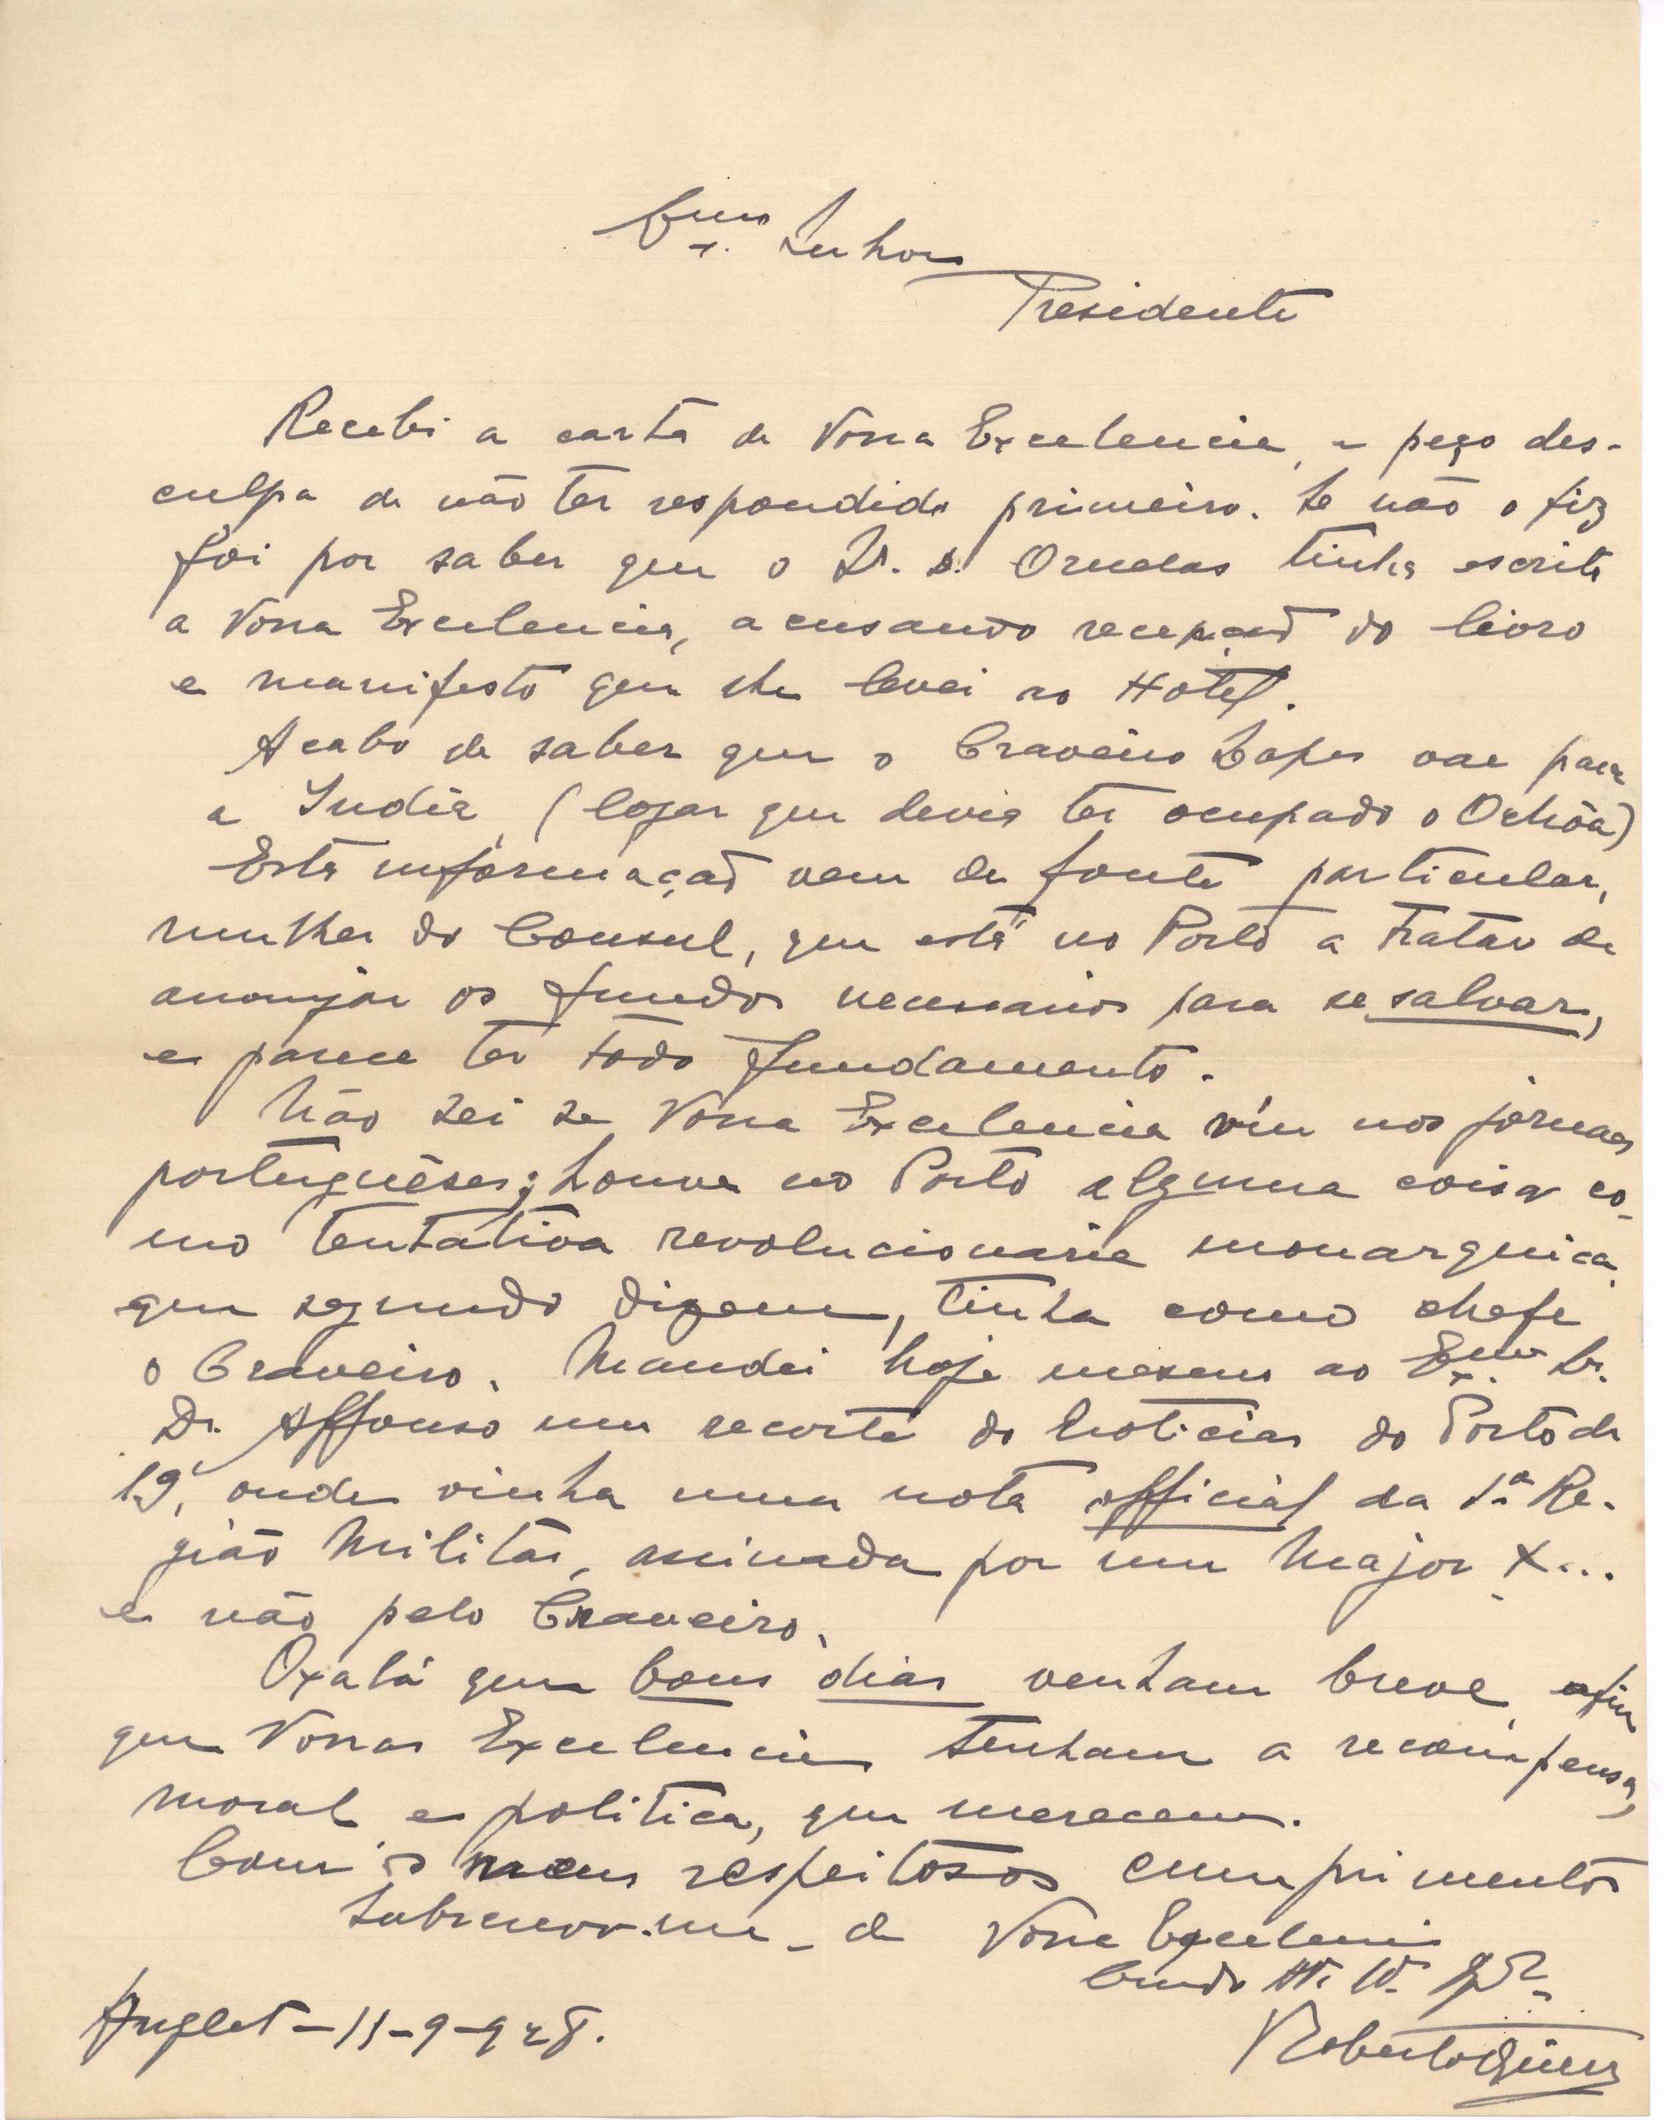 Exmo. Senhor
Presidente
Recebi a carta de Vossa Excelencia, e peço des-
culpa de não ter respondido primeiro. Se não o fiz
foi por saber que o Ornelas tinha escrito
a Vossa Excelencia, acusando recepção do livro
e manifesto que lhe levei ao Hotel.
Acabo de saber que o Craveiro Lopes vae para
a India, (logar que devia ter ocupado o Ochôa)
Esta informação vem de fonte particular,
mulher do Consul, que está no Porto a tratar de
arranjar os fundos necessarios para se salvar,
e parece ter todo fundamento.
Não sei se Vossa Excelencia viu nos jornaes
portuguêses; houve no Porto alguma coisa co-
mo tentativa revolucionaria monarquica,
que segundo dizem, tinha como chefe
o Craveiro. Mandei hoje mesmo ao Exmo. Sr.
Dr. Affonso um recorte do Noticias do Porto de
19, onde vinha uma nota official da 1ª Re-
gião Militar, assinada por um Major X...
e não pelo Craveiro.
Oxalá que bons dias venham breve, afim
que Vossas Excelencias tenham a recompensa,
moral e politica, que merecem.
Com os meus respeitosos cumprimentos
subscrevo-me - de Vossa Excelencia
Anglet - 11-9-928.